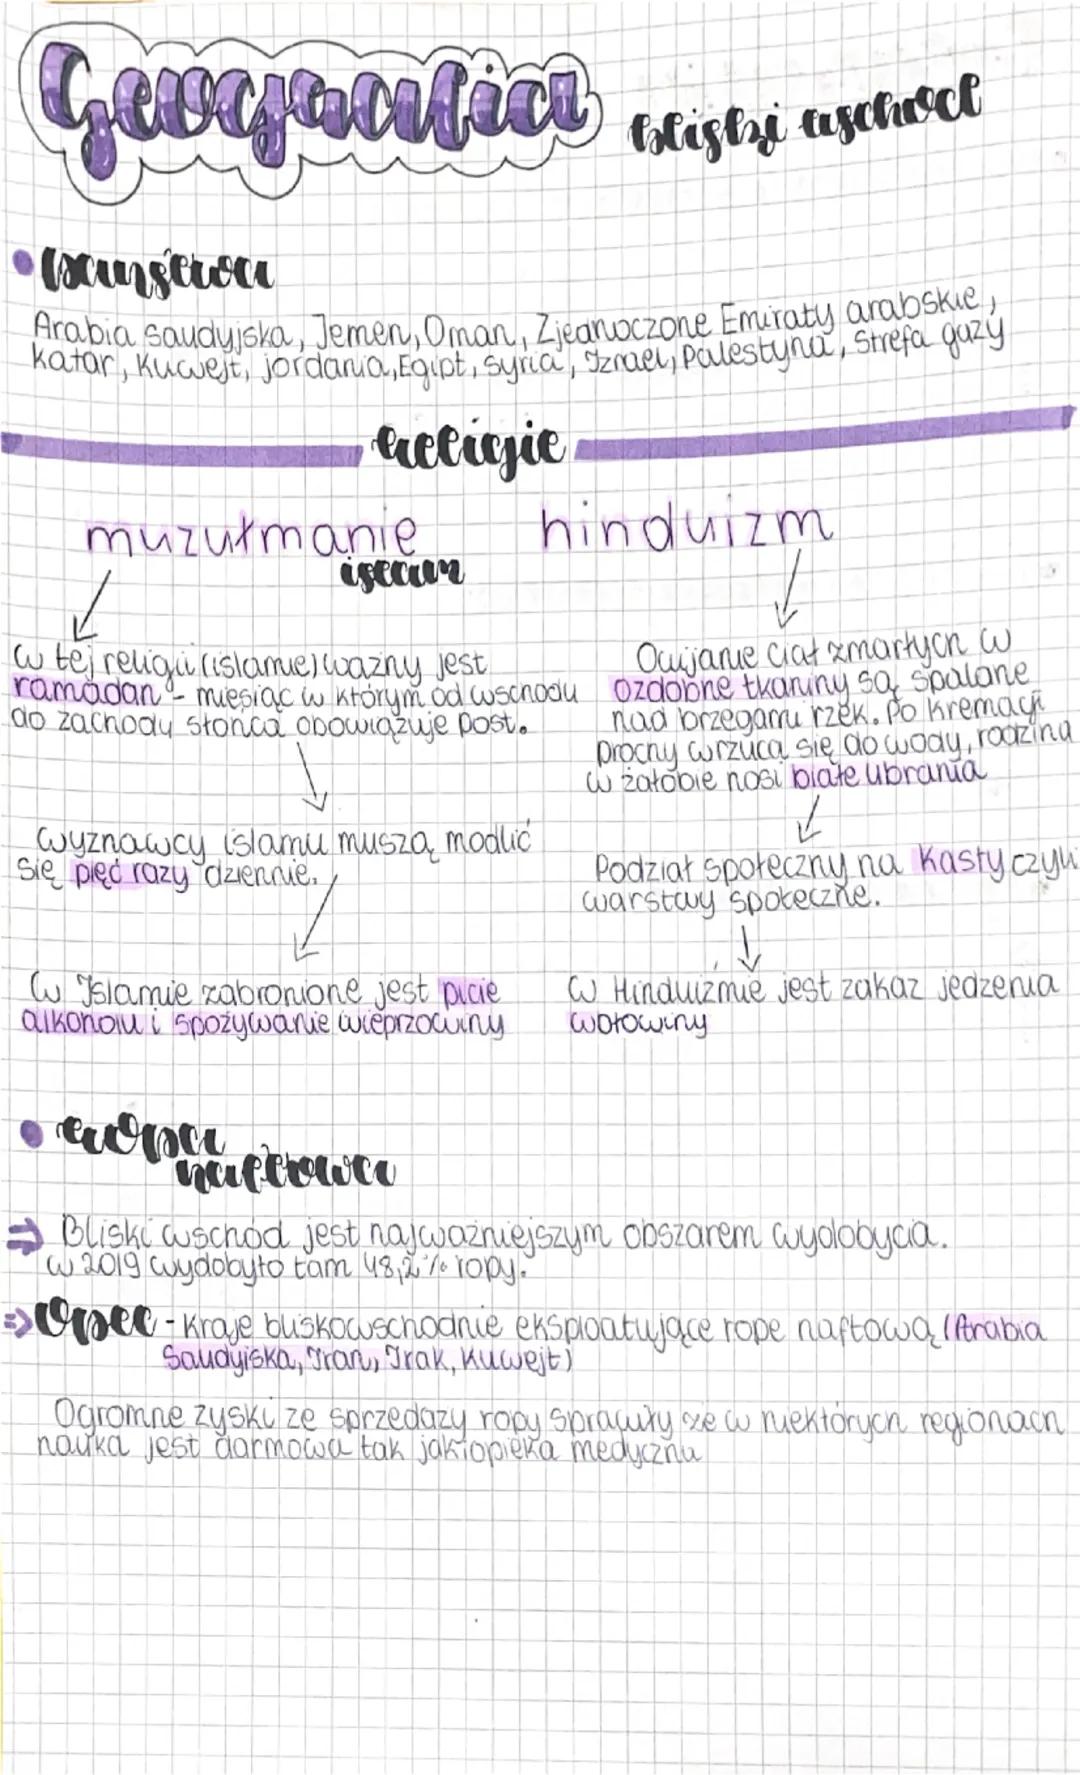 Geografia
bliski wschód
państwa
Arabia saudyjska, Jemen, Oman, Zjednoczone Emiraty arabskie,
katar, Kuwejt, jordania, Egipt, Syria, Izrael, Palestyna, Strefa gazy
religie
muzułmanie hinduizm
islam
w tej religii (islamie) ważny jest
ramadan - miesiąc w którym od wschodu
do zachodu słońca obowiązuje post.
Owijanie ciał zmarłych w
ozdobne tkaniny są spalane
nad brzegami rzek. Po kremacji
prochy wrzuca się do wody, rodzina
w żałobie nosi białe ubrania
wyznawcy islamu muszą modlić
się pięć razy dziennie.
Podział społeczny na kasty czyli
warstwy społeczne.
W Islamie zabronione jest picie
alkoholu i spożywanie wieprzowiny
W Hinduizmie jest zakaz jedzenia
wołowiny
ropa
naftowa
Bliski wschód jest najważniejszym obszarem wydobycia.
w 2019 wydobyto tam 48,2% ropy.
Opec - kraje bliskowschodnie eksploatujące rope naftową (Arabia
Saudyjska, Iran, Irak, Kuwejt)
Ogromne zyski ze sprzedaży ropy sprawiły że w niektórych regionach
nauka jest darmowa tak jak i opieka medyczna